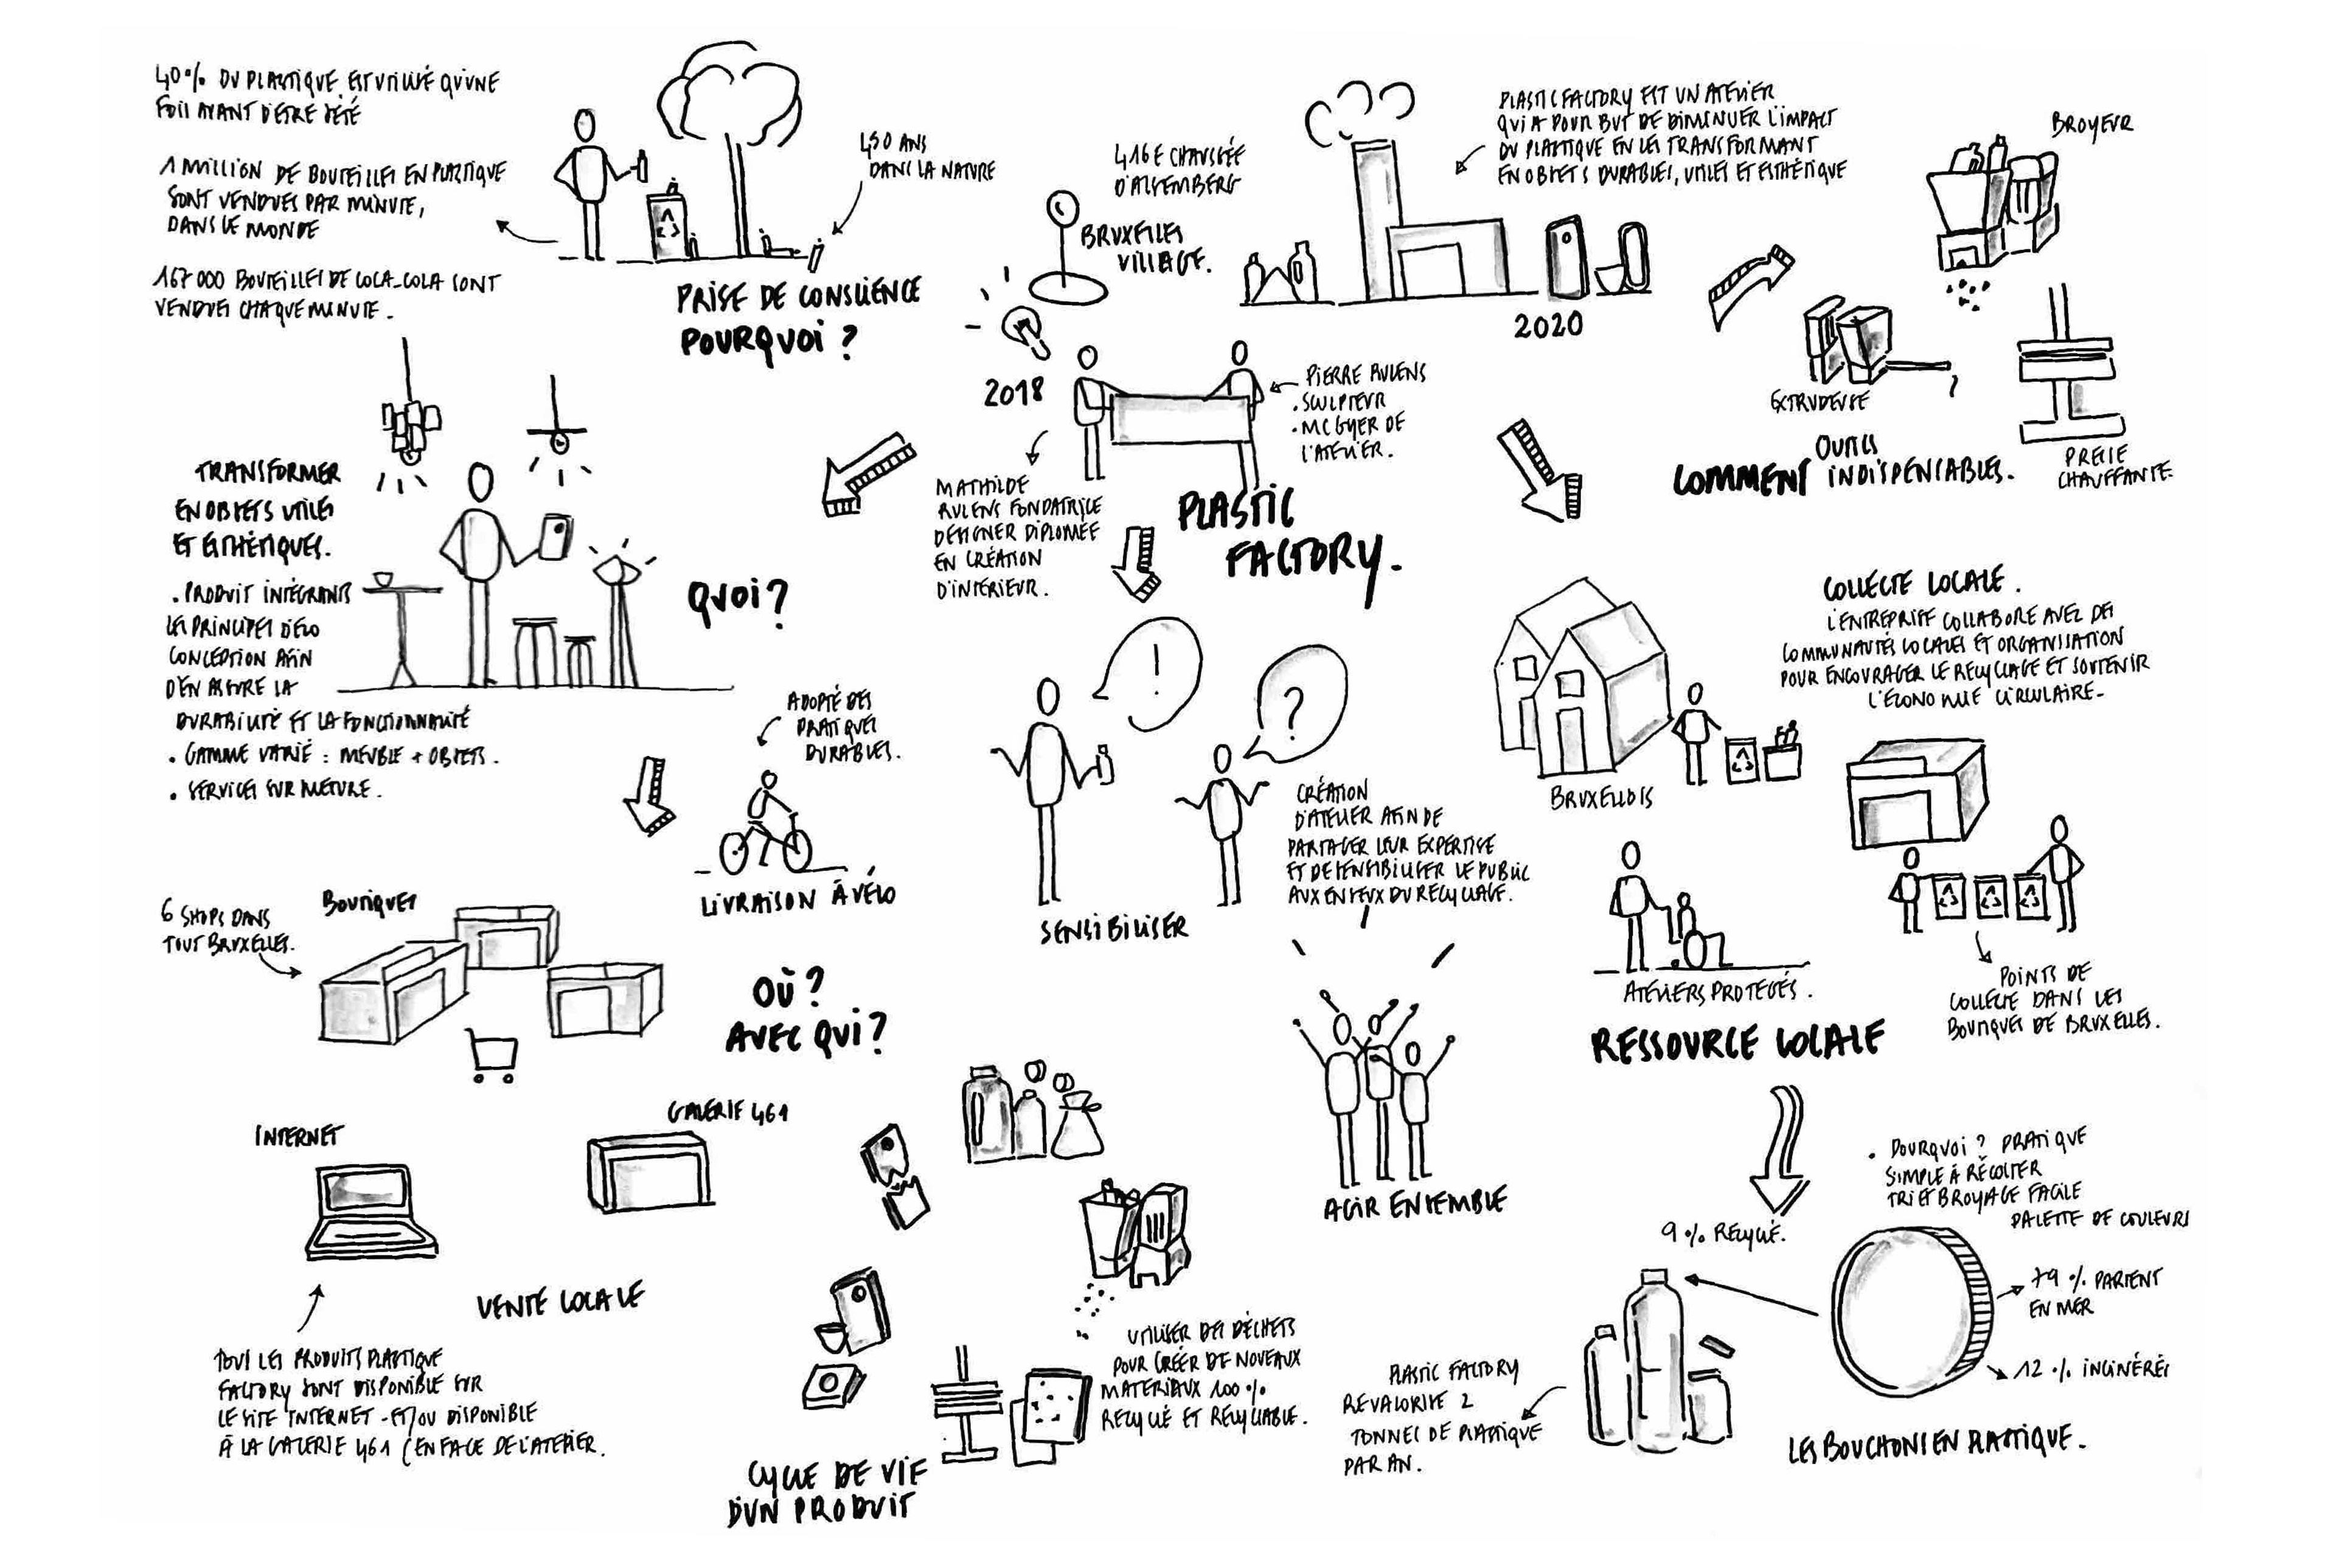 40% DU PLASTIQUE EST UTILISÉ QU'UNE
FOIS AVANT D'ÊTRE JETÉ
1 MILLION DE BOUTEILLES EN PLASTIQUE
SONT VENDUES PAR MINUTE,
DANS LE MONDE
167 000 BOUTEILLES DE COCA-COLA SONT
VENDUES CHAQUE MINUTE.
450 ANS
DANS LA NATURE
PRISE DE CONSCIENCE
POURQUOI ?
416E CHAUSSÉE
D'ALSEMBERG
BRUXELLES
VILLAGE.
PLASTIC FACTORY EST UN ATELIER
QUI A POUR BUT DE DIMINUER L'IMPACT
DU PLASTIQUE EN LES TRANSFORMANT
EN OBJETS DURABLES, UTILES ET ESTHÉTIQUE
2020
BROYEUR
EXTRUDEUSE
PRESSE
CHAUFFANTE.
COMMENT OUTILS
INDISPENSABLES.
2018
PIERRE RULENS
. SCULPTEUR
. MC GYER DE
L'ATELIER.
MATHILDE
RULENS FONDATRICE
DESIGNER DIPLOMÉE
EN CRÉATION
D'INTÉRIEUR.
PLASTIC
FACTORY.
TRANSFORMER
EN OBJETS UTILES
ET ESTHÉTIQUES.
. PRODUIT INTÉGRANTS
LES PRINCIPES D'ÉCO
CONCEPTION AFIN
D'EN ASSURE LA
DURABILITÉ ET LA FONCTIONNALITÉ
. GAMME VARIÉ : MEUBLE + OBJETS.
. SERVICES SUR MESURE.
QUOI ?
ADOPTÉ DES
PRATIQUES
DURABLES.
LIVRAISON À VÉLO
CRÉATION
D'ATELIER AFIN DE
PARTAGER LEUR EXPERTISE
ET DE SENSIBILISER LE PUBLIC
AUX ENJEUX DU RECYCLAGE.
SENSIBILISER
COLLECTE LOCALE.
L'ENTREPRISE COLLABORE AVEC DES
COMMUNAUTÉS LOCALES ET ORGANISATION
POUR ENCOURAGER LE RECYCLAGE ET SOUTENIR
L'ÉCONOMIE CIRCULAIRE-
BRUXELLOIS
ATELIERS PROTEGÉS.
POINTS DE
COLLECTE DANS LES
BOUTIQUES DE BRUXELLES.
RESSOURCE LOCALE
6 SHOPS DANS
TOUT BRUXELLES.
BOUTIQUES
OÙ ?
AVEC QUI ?
INTERNET
GALERIE 461
VENTE LOCALE
TOUS LES PRODUITS PLASTIQUE
FACTORY SONT DISPONIBLE SUR
LE SITE INTERNET - ET/OU DISPONIBLE
À LA GALERIE 461 (EN FACE DE L'ATELIER.
AGIR ENSEMBLE
UTILISER DES DÉCHETS
POUR CRÉER DE NOVEAUX
MATERIAUX 100%
RECYCLÉ ET RECYCLABLE.
CYCLE DE VIE
D'UN PRODUIT
9 % RECYCLÉ.
. POURQUOI ? PRATIQUE
SIMPLE À RÉCOLTER
TRI ET BROYAGE FACILE
PALETTE DE COULEURS
79 % PARTENT
EN MER
12 % INCINÉRÉS
PLASTIC FACTORY
REVALORISE 2
TONNES DE PLASTIQUE
PAR AN.
LES BOUCHONS EN PLASTIQUE.
!
?